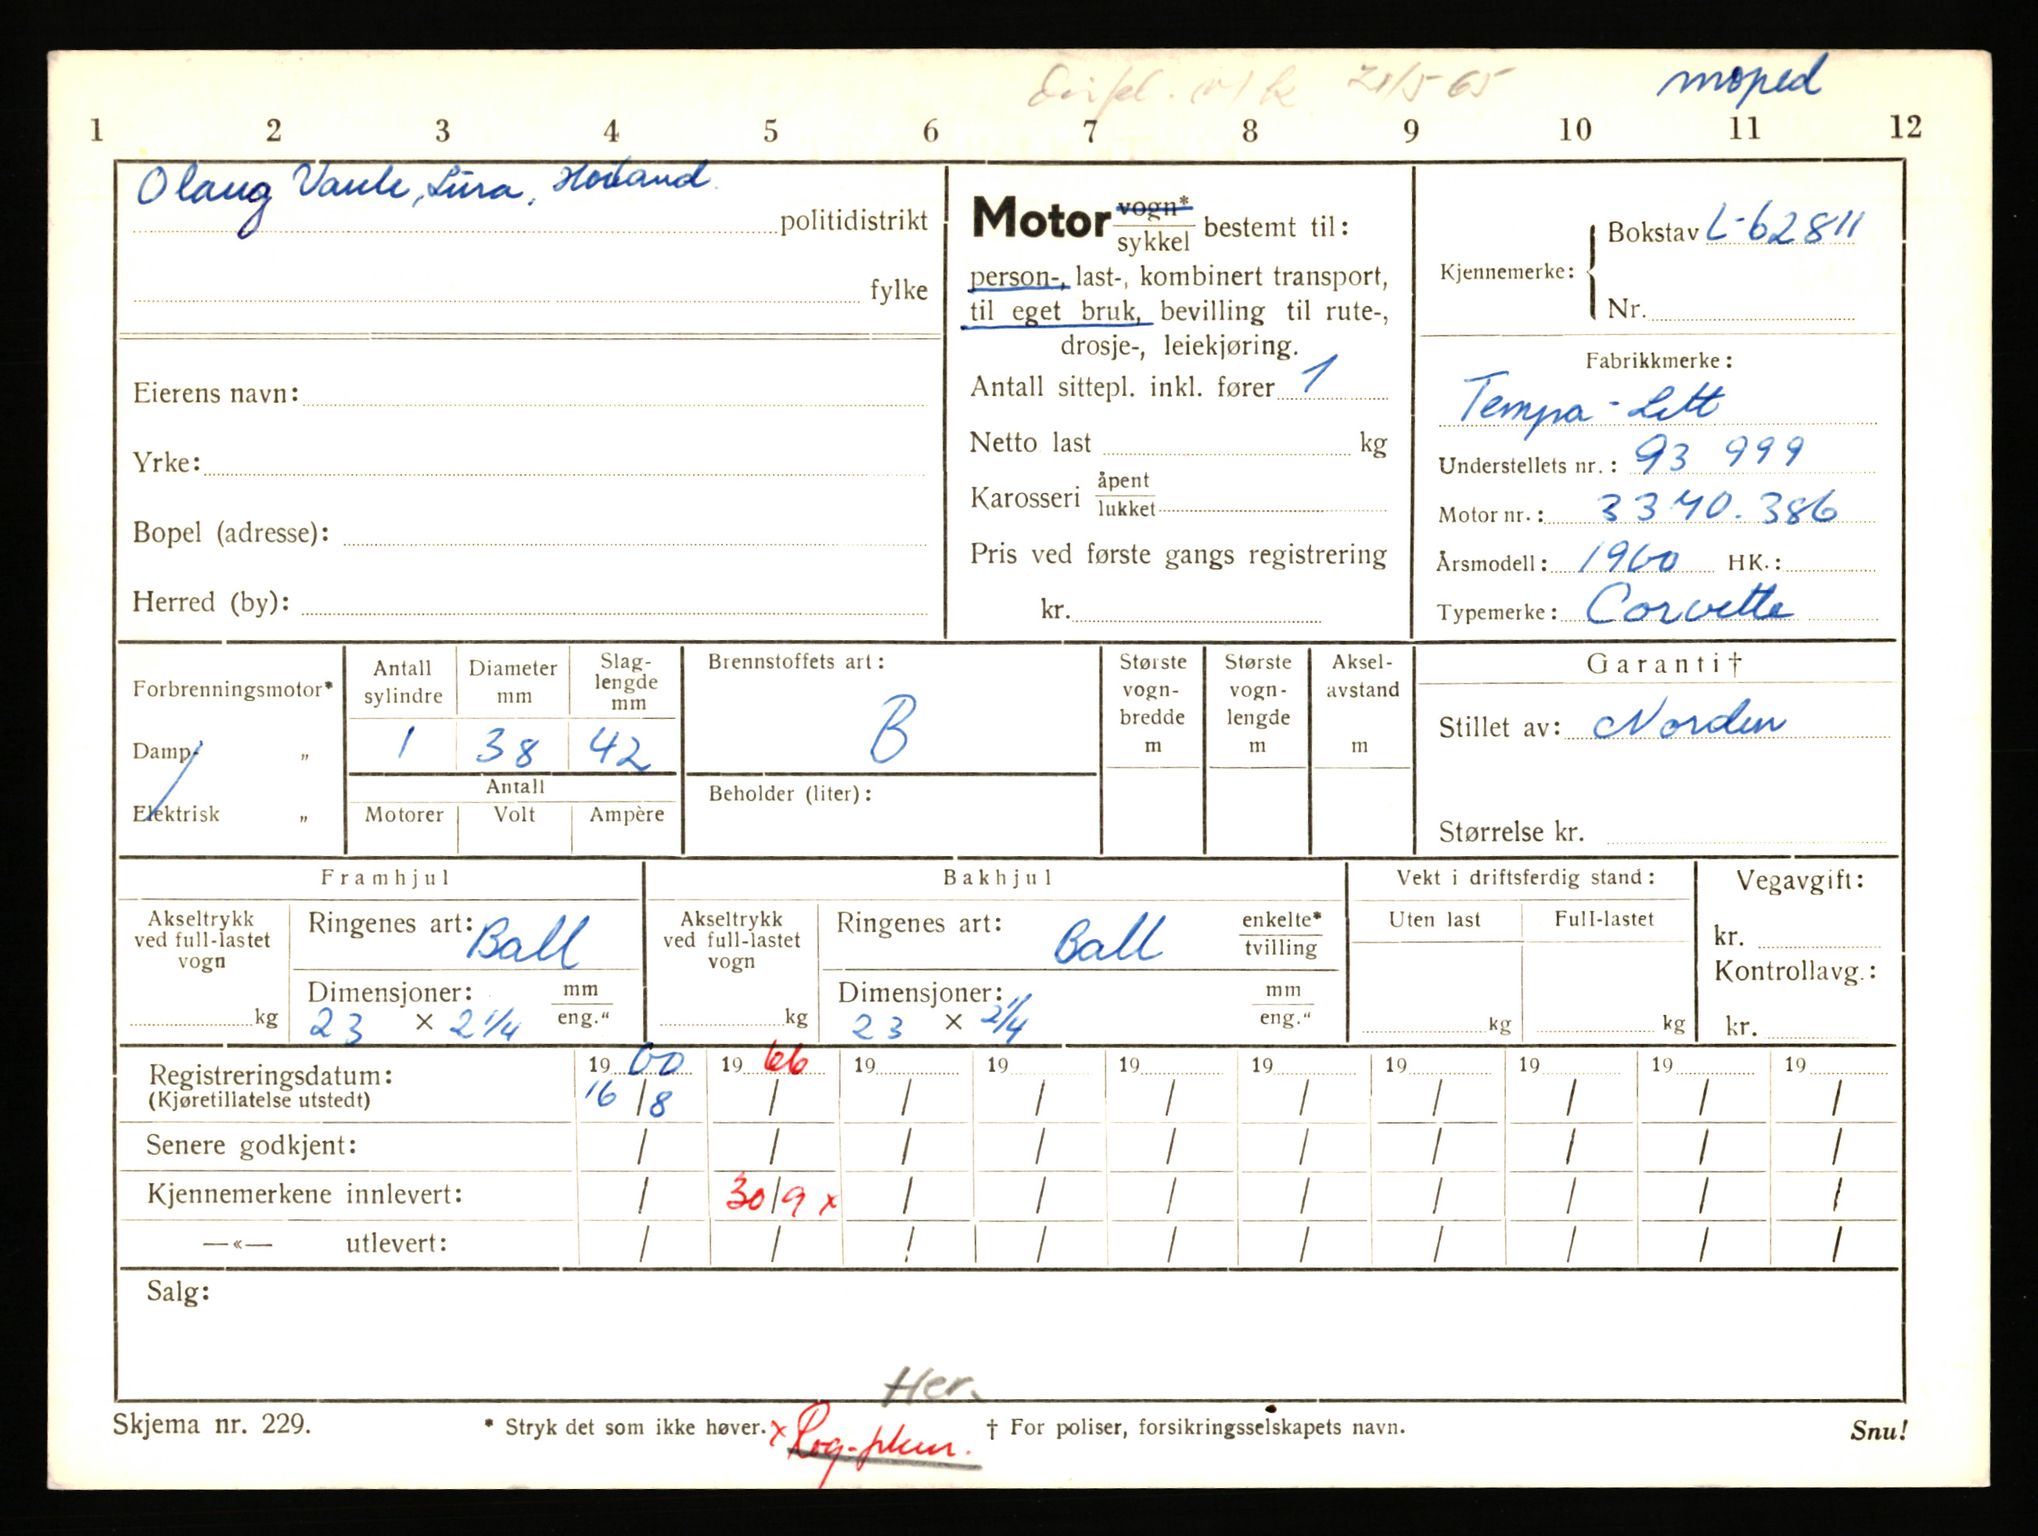 21/5-65 moped
1 2 3 4 5 6 7 8 9 10 11 12
Olaug Vaule, Lura, Høiland
politidistrikt
fylke
Eierens navn:
Yrke:
Bopel (adresse):
Herred (by):
Motor vogn* / sykkel bestemt til:
person-, last-, kombinert transport,
til eget bruk, bevilling til rute-,
drosje-, leiekjøring.
Antall sittepl. inkl. fører 1
Netto last kg
Karosseri åpent / lukket
Pris ved første gangs registrering
kr.
Kjennemerke: Bokstav L-62811
Nr.
Fabrikkmerke:
Tempo-Lett
Understellets nr.: 93 999
Motor nr.: 3370.386
Årsmodell: 1960 HK.:
Typemerke: Corvette
Forbrenningsmotor*
Damp- „
Elektrisk „
Antall sylindre
1
Diameter mm
38
Slag-
lengde
mm
42
Antall
Motorer Volt Ampère
Brennstoffets art:
B
Beholder (liter):
Største
vogn-
bredde
m
Største
vogn-
lengde
m
Aksel-
avstand
m
Garanti†
Stillet av: Norden
Størrelse kr.
Framhjul
Akseltrykk
ved full-lastet
vogn
kg
Ringenes art: Ball
Dimensjoner: mm
23 × 2 1/4 eng."
Bakhjul
Akseltrykk
ved full-lastet
vogn
kg
Ringenes art: Ball enkelte* / tvilling
Dimensjoner: mm
23 × 2 1/4 eng."
Vekt i driftsferdig stand:
Uten last Full-lastet
kg kg
Vegavgift:
kr.
Kontrollavg.:
kr.
Registreringsdatum: 19 60 19 66 19 19 19 19 19 19 19 19
(Kjøretillatelse utstedt) 16/8 / / / / / / / / /
Senere godkjent: / / / / / / / / / /
Kjennemerkene innlevert: / 30/9 x / / / / / / / /
—«— utlevert: / / / / / / / / / /
Salg:
Her.
Skjema nr. 229. * Stryk det som ikke høver. x † For poliser, forsikringsselskapets navn. Snu!